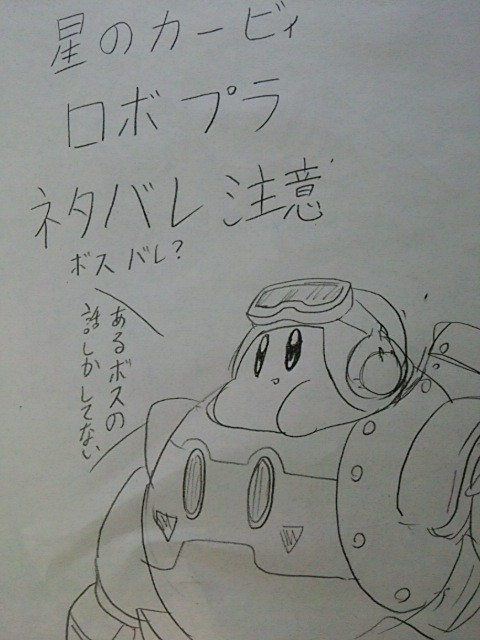 星のカービィ
ロボプラ
ネタバレ注意
ボスバレ?
あるボスの
話しかしてない